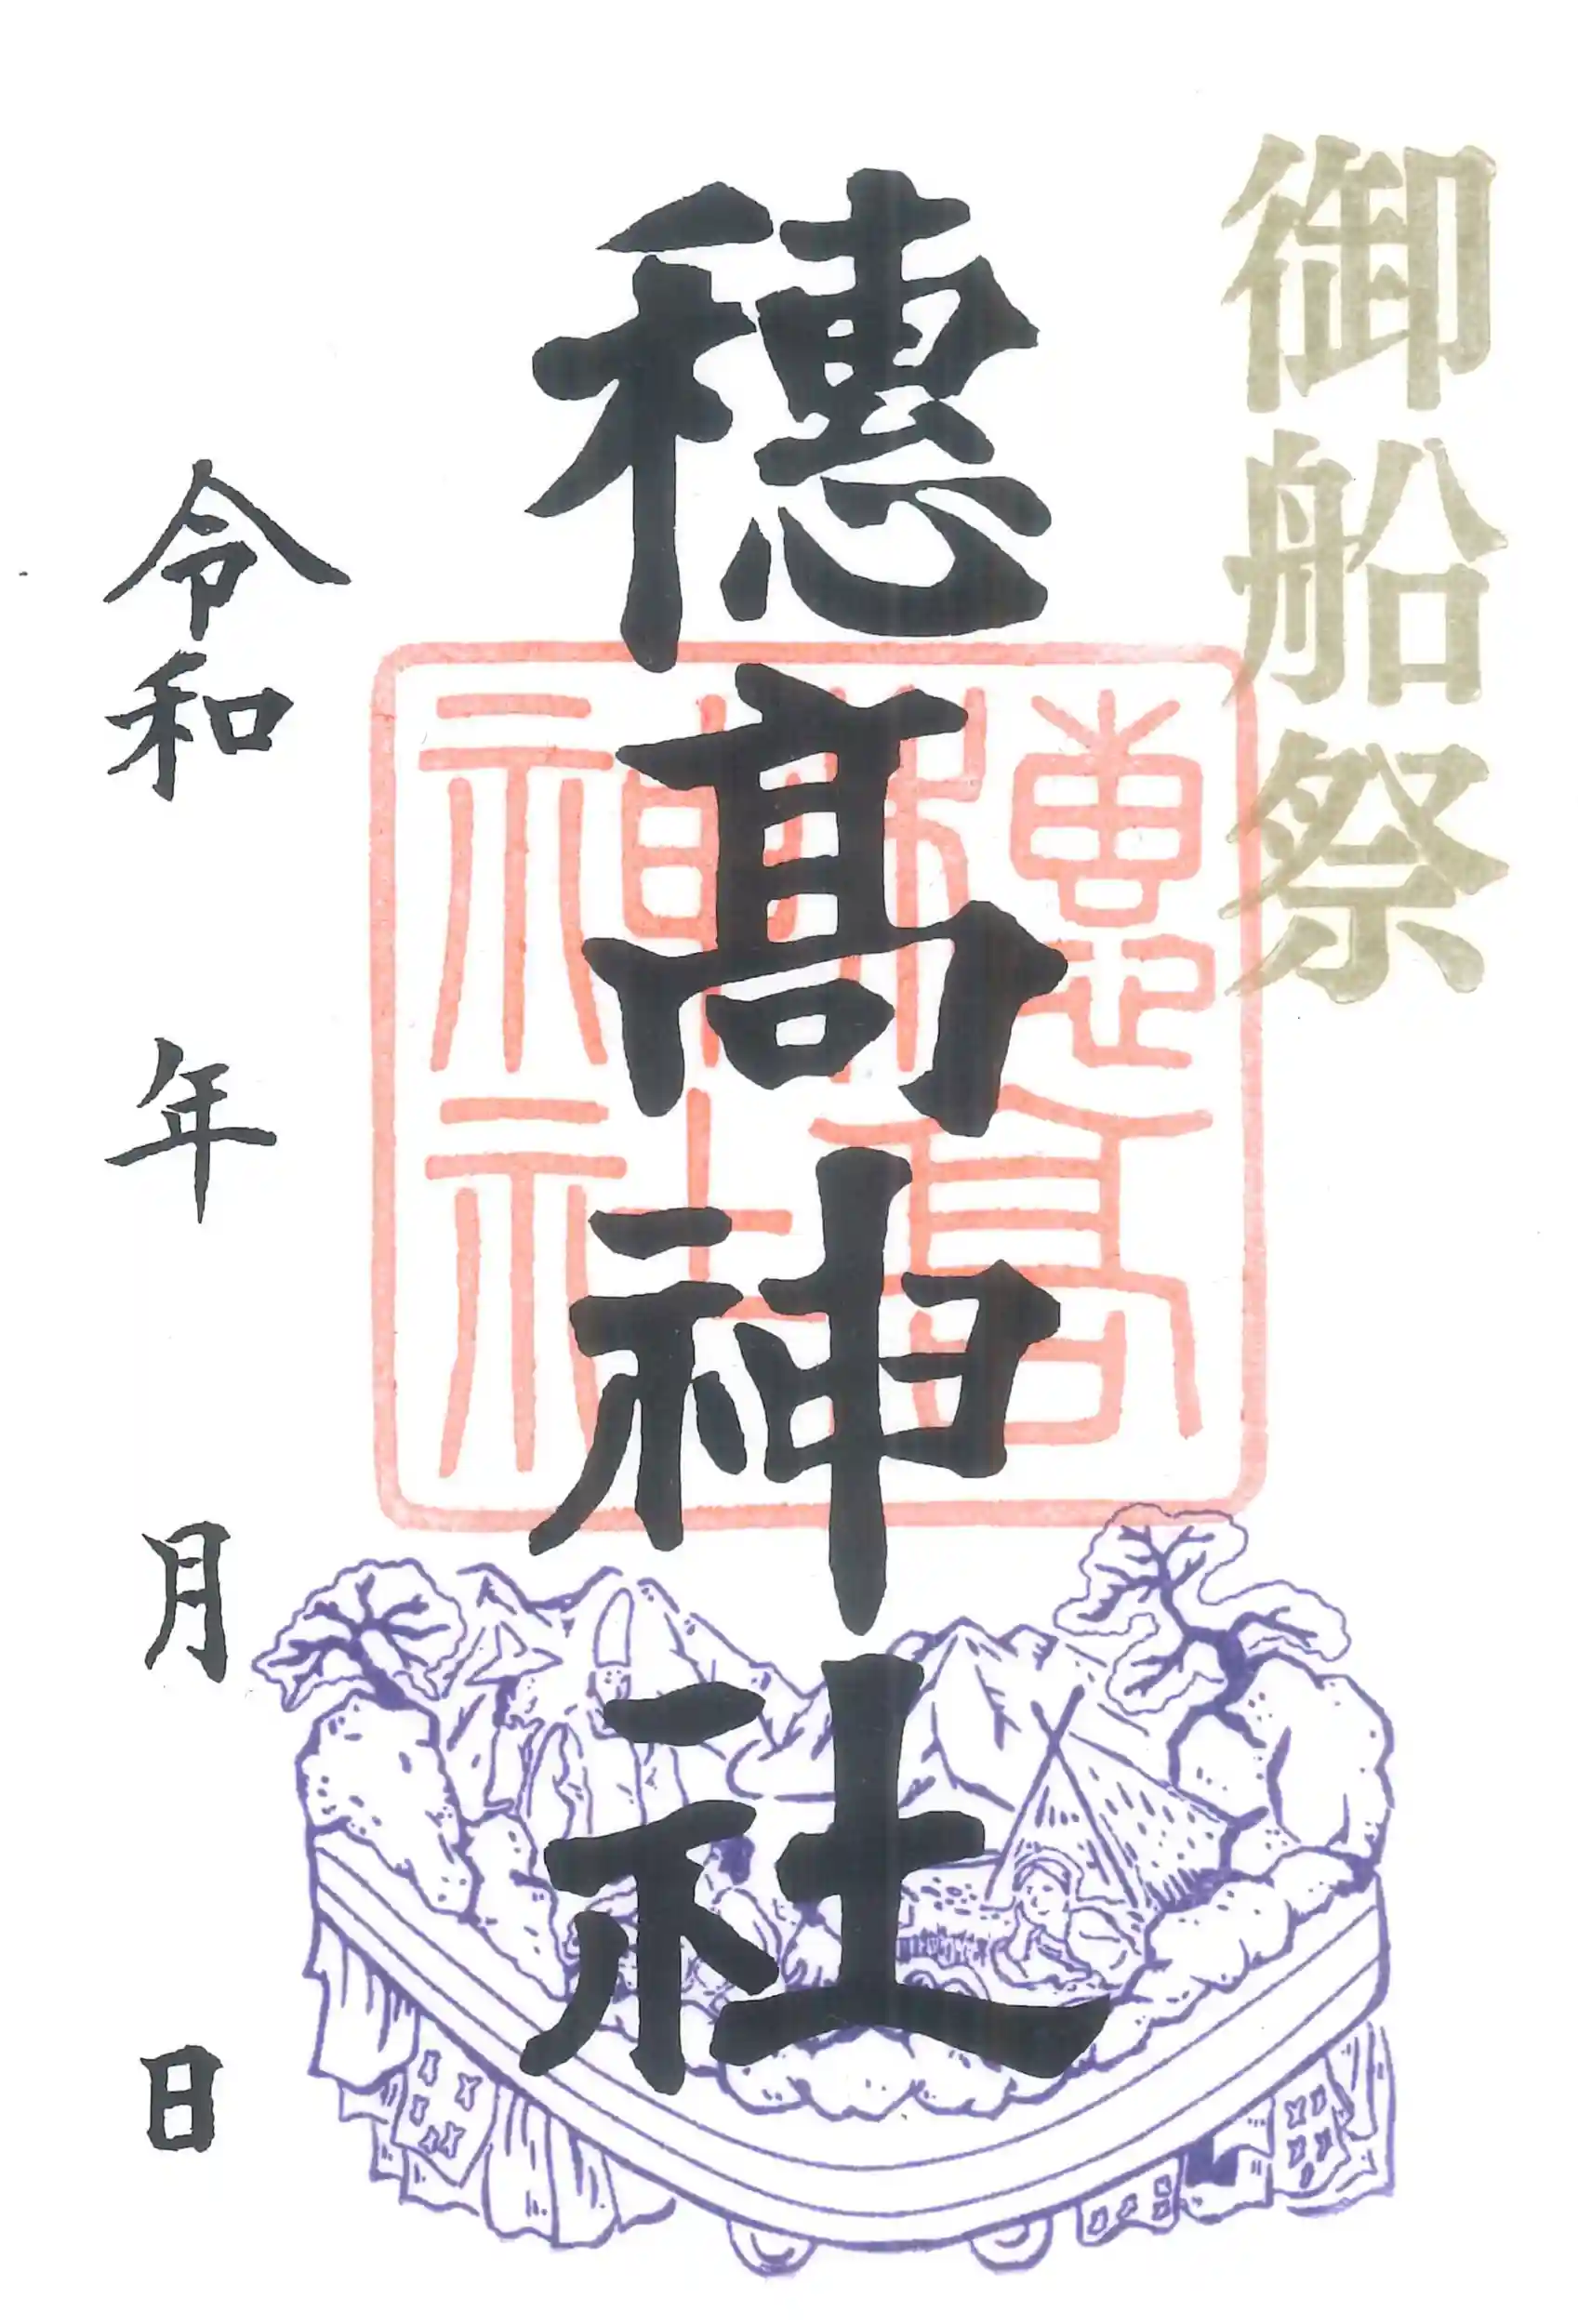 御船祭
穂髙神社
穂高神社
令和 年 月 日